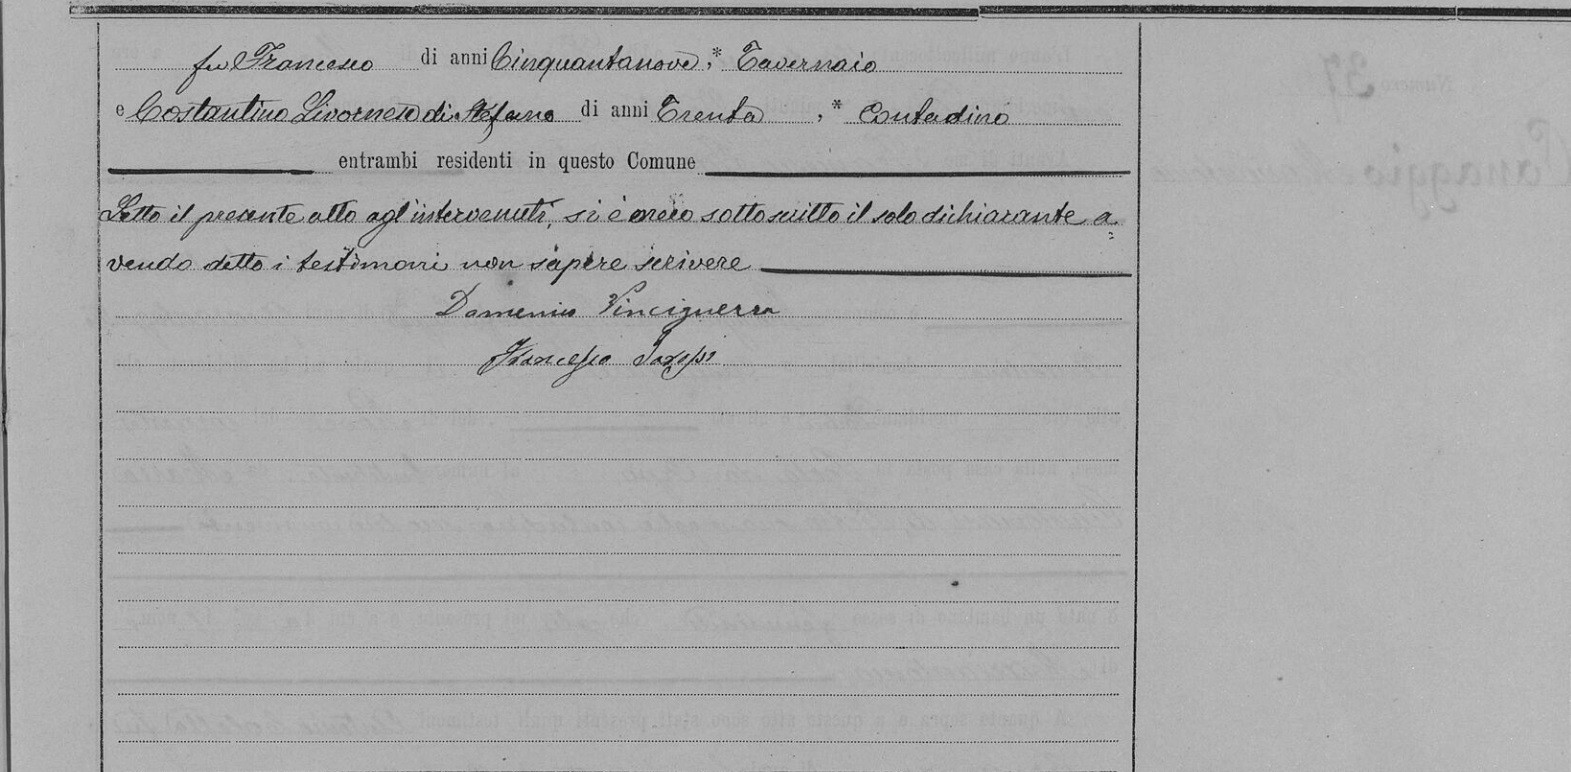 fu Francesco di anni Cinquantanove, * Tavernaio
e Costantino Livornese di Stefano di anni Trenta , * Contadino
entrambi residenti in questo Comune
Letto il presente atto agl'intervenuti, si è meco sottoscritto il solo dichiarante a
vendo detto i testimoni non sapere scrivere
Domenico Vinciguerra
Francesco